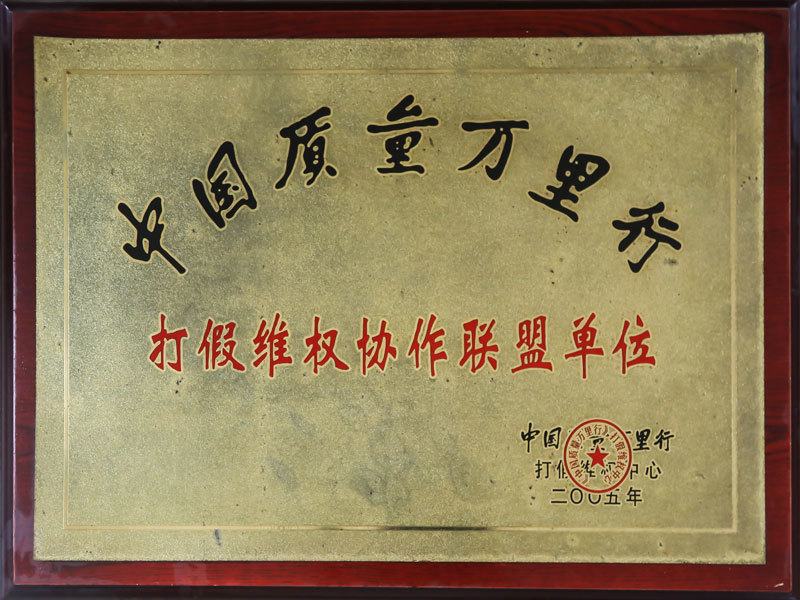 中国质量万里行
打假维权协作联盟单位
中国质量万里行
打假维权中心
二〇〇五年
《中国质量万里行》打假维权中心